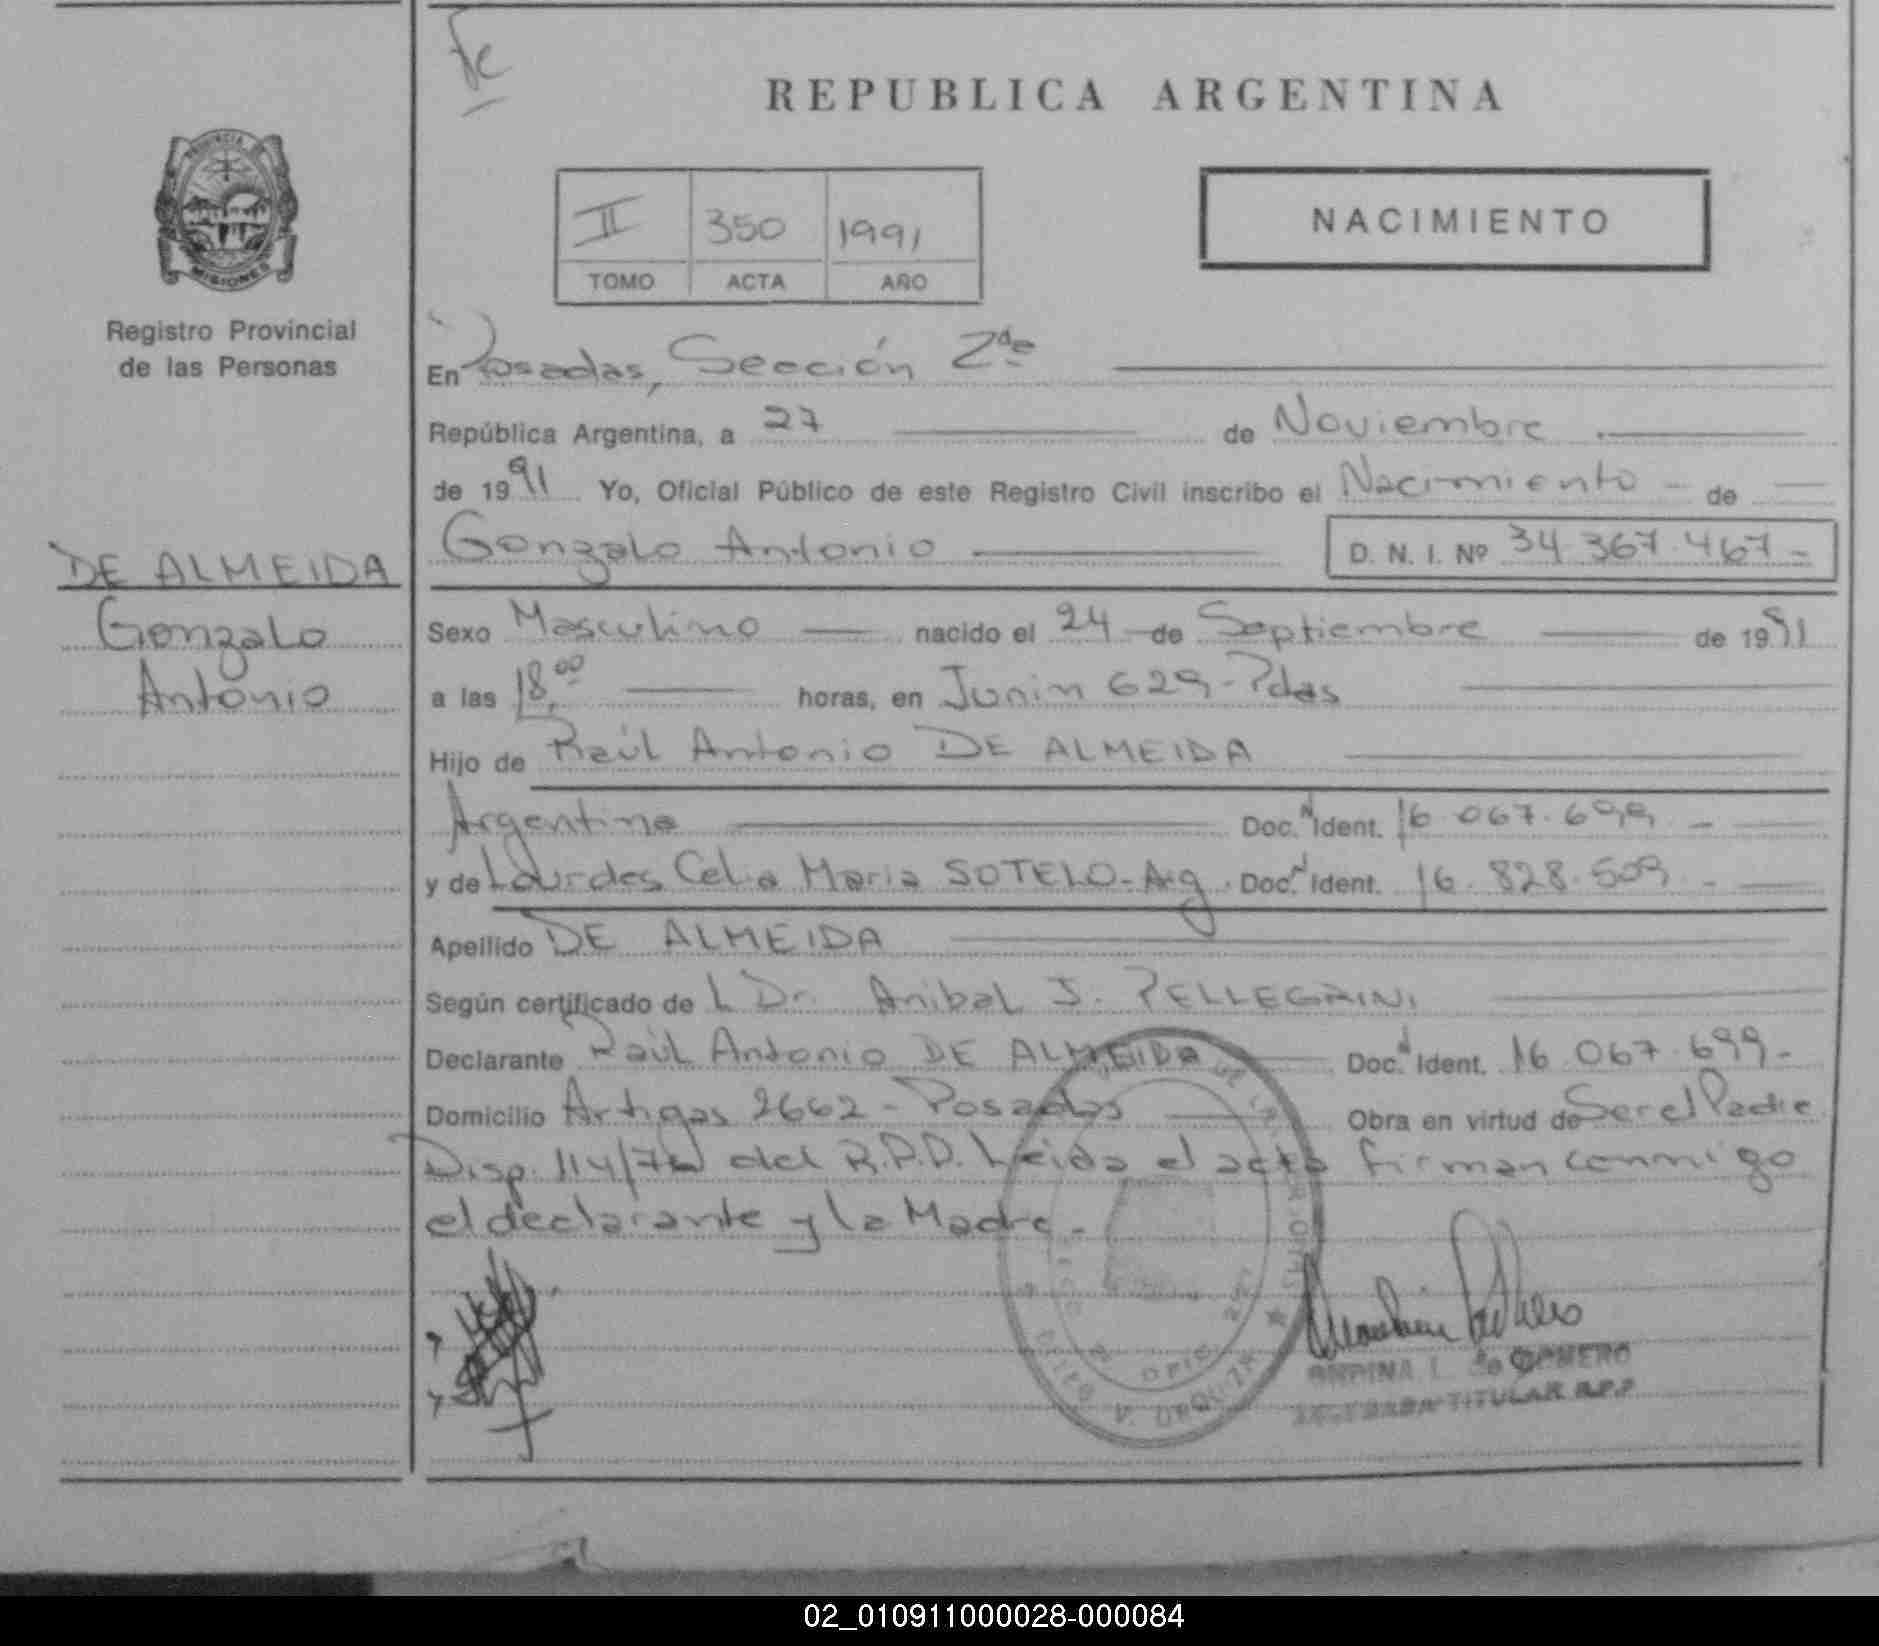 Fe
REPUBLICA ARGENTINA
PROVINCIA DE
MISIONES
II 350 1991
TOMO ACTA AÑO
NACIMIENTO
Registro Provincial
de las Personas
En Posadas, Sección 2da
República Argentina, a 27 de Noviembre
de 1991 Yo, Oficial Público de este Registro Civil inscribo el Nacimiento - de
Gonzalo Antonio D. N. I. Nº 34.367.467-
DE ALMEIDA
Gonzalo
Antonio
Sexo Masculino nacido el 24 de Septiembre de 1991
a las 18,00 horas, en Junin 629-Pdas
Hijo de Raúl Antonio DE ALMEIDA
Argentino Doc. Ident. 16.067.699. -
y de Lourdes Celia Maria SOTELO-Arg. Doc. Ident. 16.828.509 -
Apellido DE ALMEIDA
Según certificado del Dr. Anibal J. PELLEGRINI
Declarante Raúl Antonio DE ALMEIDA Doc. Ident. 16.067.699-
Domicilio Artigas 2662-Posadas Obra en virtud de Ser el Padre
Disp. 114/76 del R.P.P. Leida el acta firman conmigo
el declarante y la Madre.-
TITULAR R.P.P
02_010911000028-000084